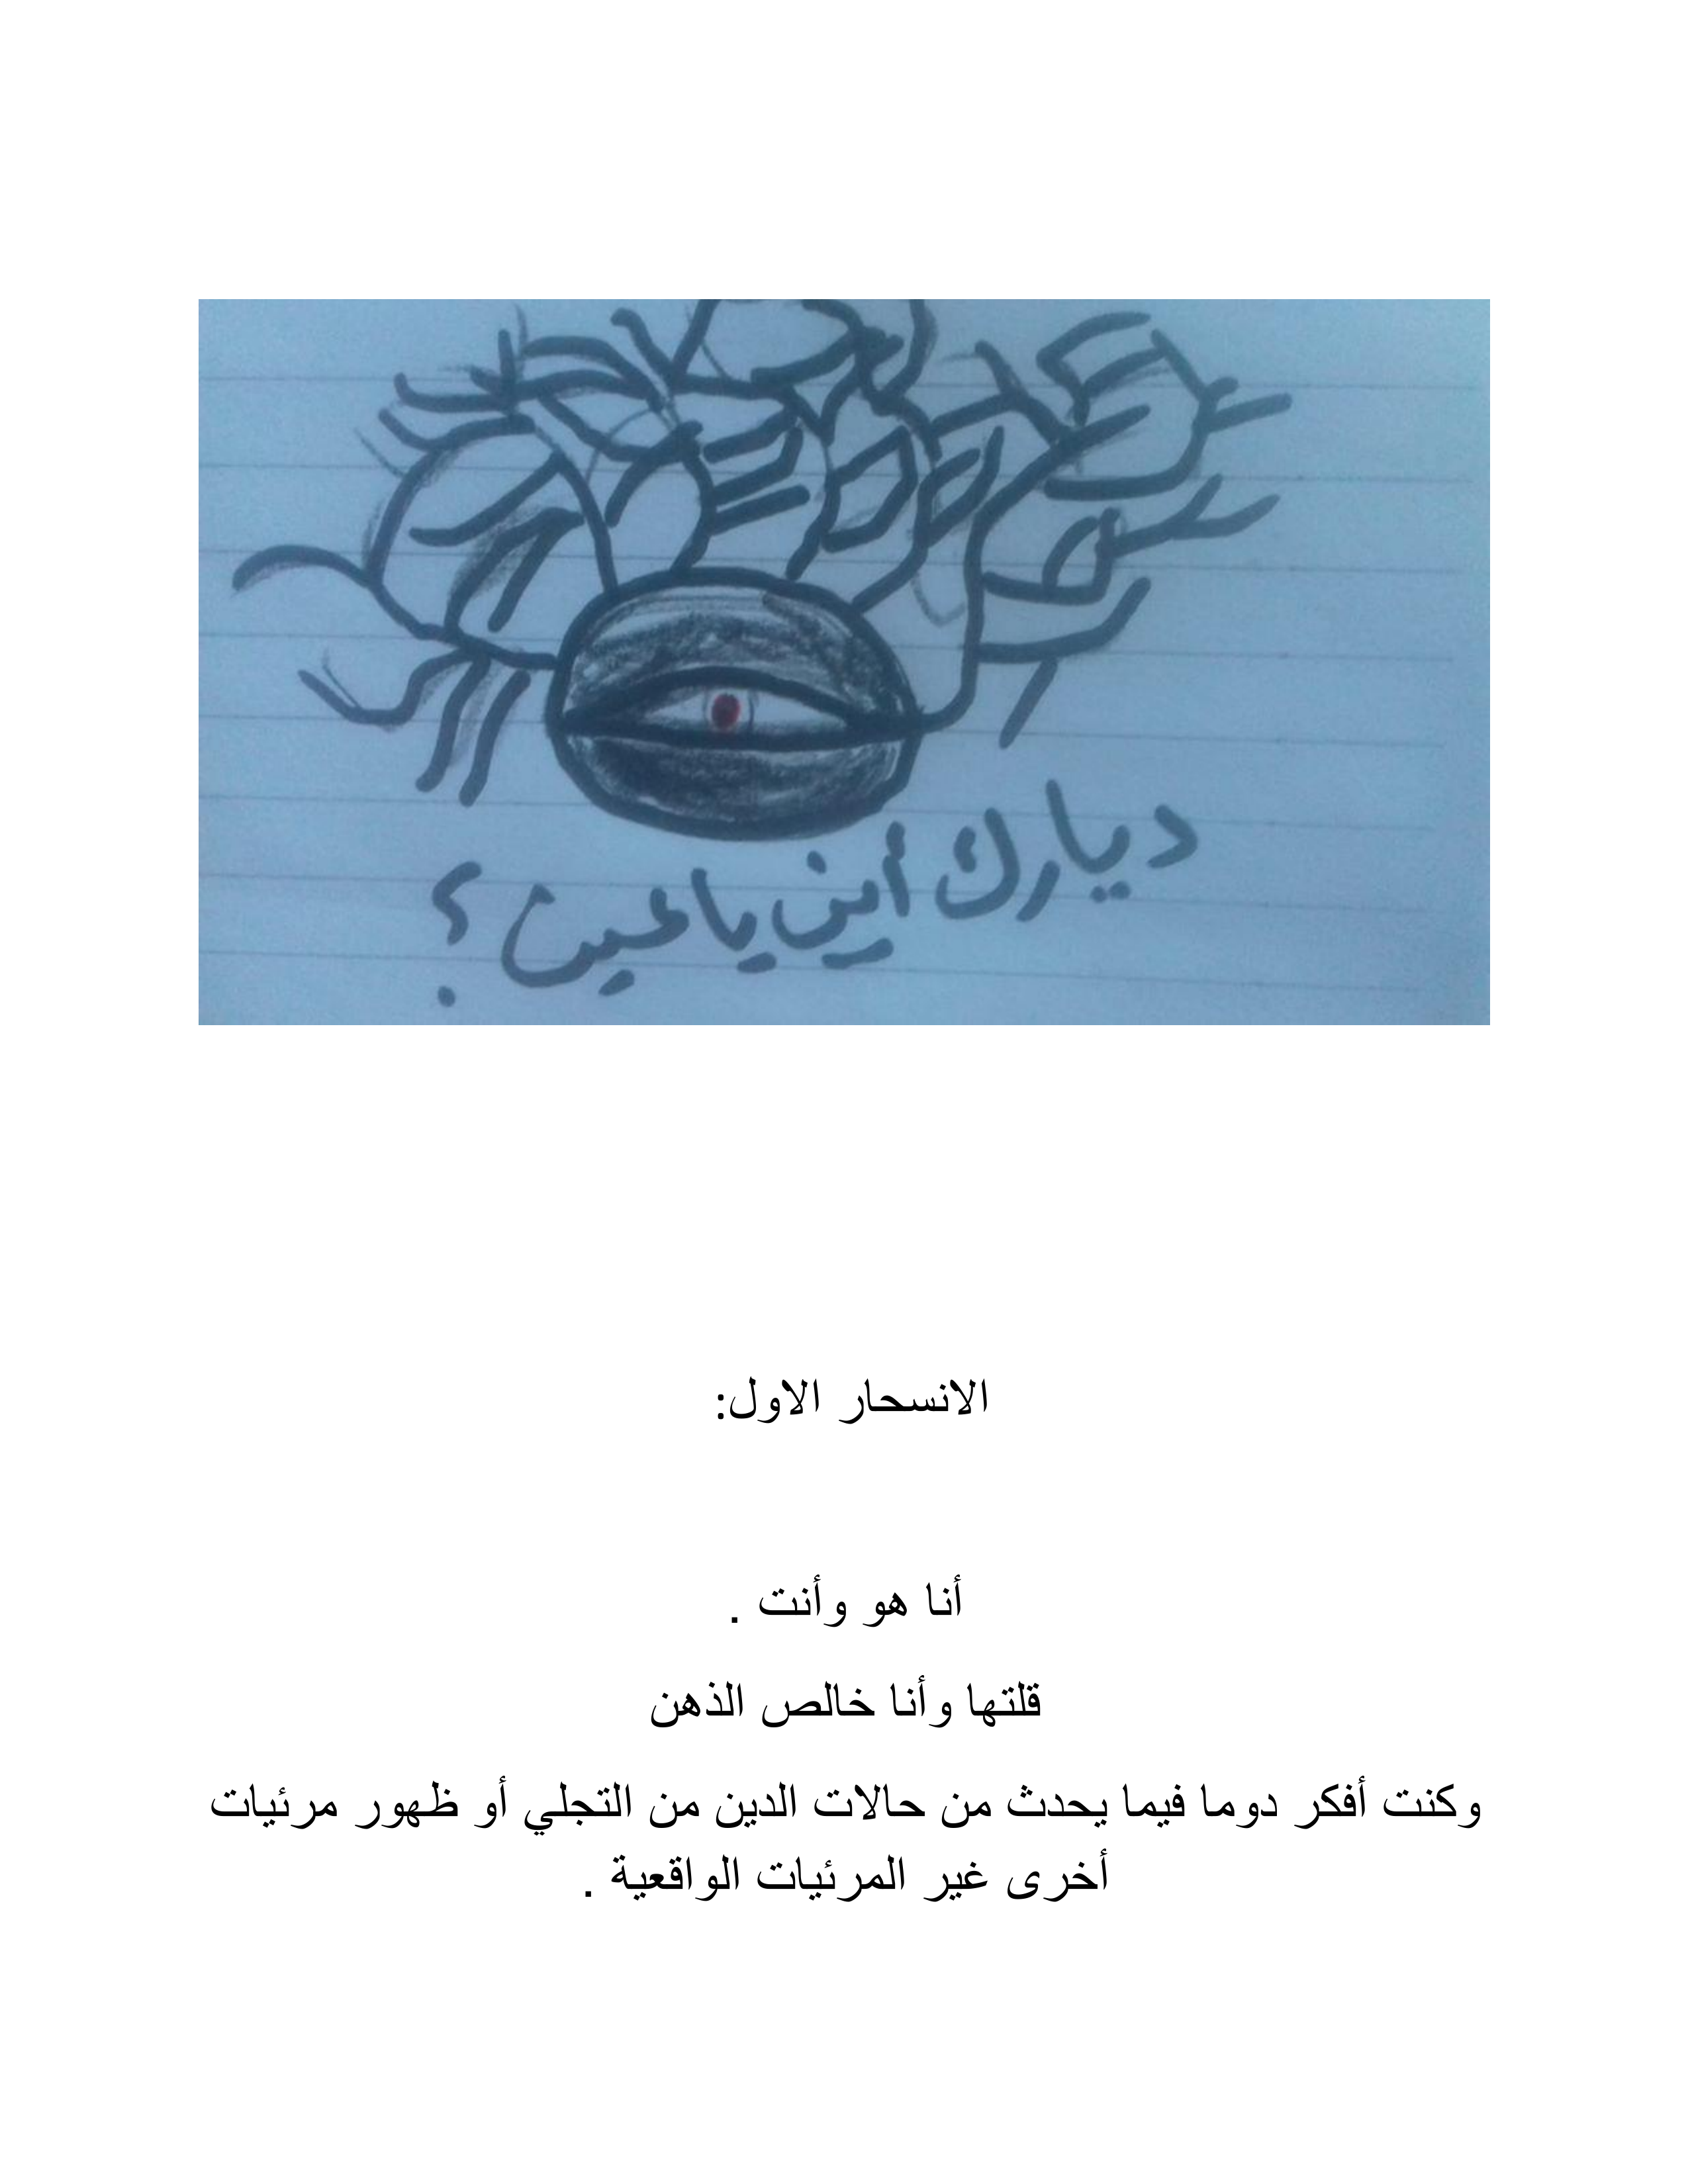 ديارك أين يا عين ؟
الانسحار الاول:
أنا هو وأنت .
قلتها وأنا خالص الذهن
وكنت أفكر دوما فيما يحدث من حالات الدين من التجلي أو ظهور مرئيات
أخرى غير المرئيات الواقعية .